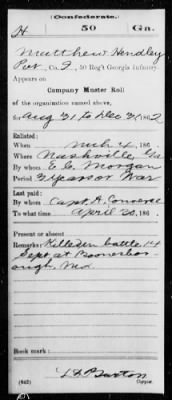 (Confederate.)
H 50 Ga.
Matthew Hendley
Pvt, Co. I, 50 Reg't Georgia Infantry.
Appears on
Company Muster Roll
of the organization named above,
for Aug 31 to Dec 31, 1862
Enlisted:
When Mch 4, 186
Where Nashville Ga
By whom E. C. Morgan
Period 3 years or War
Last paid:
By whom Capt. A. Converse
To what time April 30, 186
Present or absent
Remarks: Killed in battle 14
Sept at Boonesbor-
ough, Md.
Book mark:
(642) Copyist.